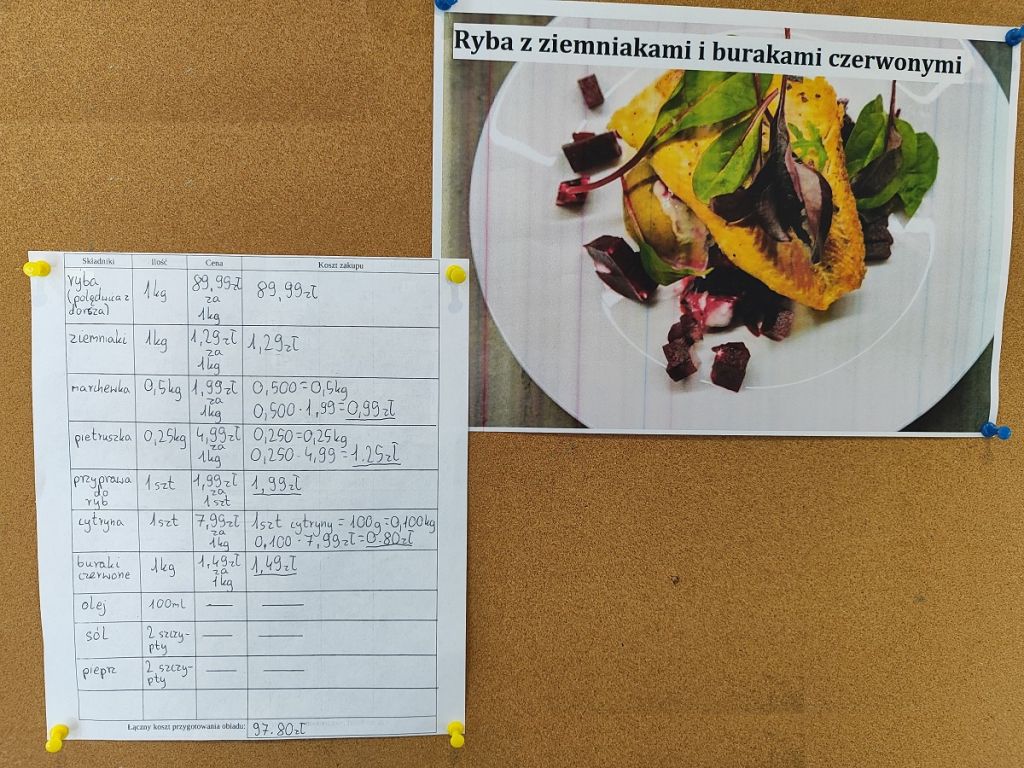 Ryba z ziemniakami i burakami czerwonymi
Składniki Ilość Cena Koszt zakupu
ryba (polędwica z dorsza) 1kg 89,99zł za 1kg 89,99zł
ziemniaki 1kg 1,29zł za 1kg 1,29zł
marchewka 0,5kg 1,99zł za 1kg 0,500=0,5kg
0,500·1,99=0,99zł
pietruszka 0,25kg 4,99zł za 1kg 0,250=0,25kg
0,250·4,99=1.25zł
przyprawa do ryb 1szt 1,99zł za 1szt 1,99zł
cytryna 1szt 7,99zł za 1kg 1szt cytryny = 100g=0,100kg
0,100·7,99zł=0.80zł
buraki czerwone 1kg 1,49zł za 1kg 1,49zł
olej 100ml — —
sól 2 szczy-pty — —
pieprz 2 szczy-pty — —
Łączny koszt przygotowania obiadu: 97.80zł